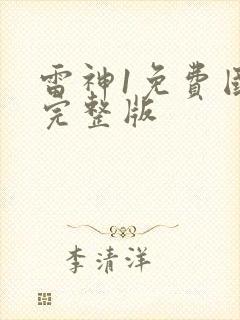 雷神1免费
完整版
李清洋